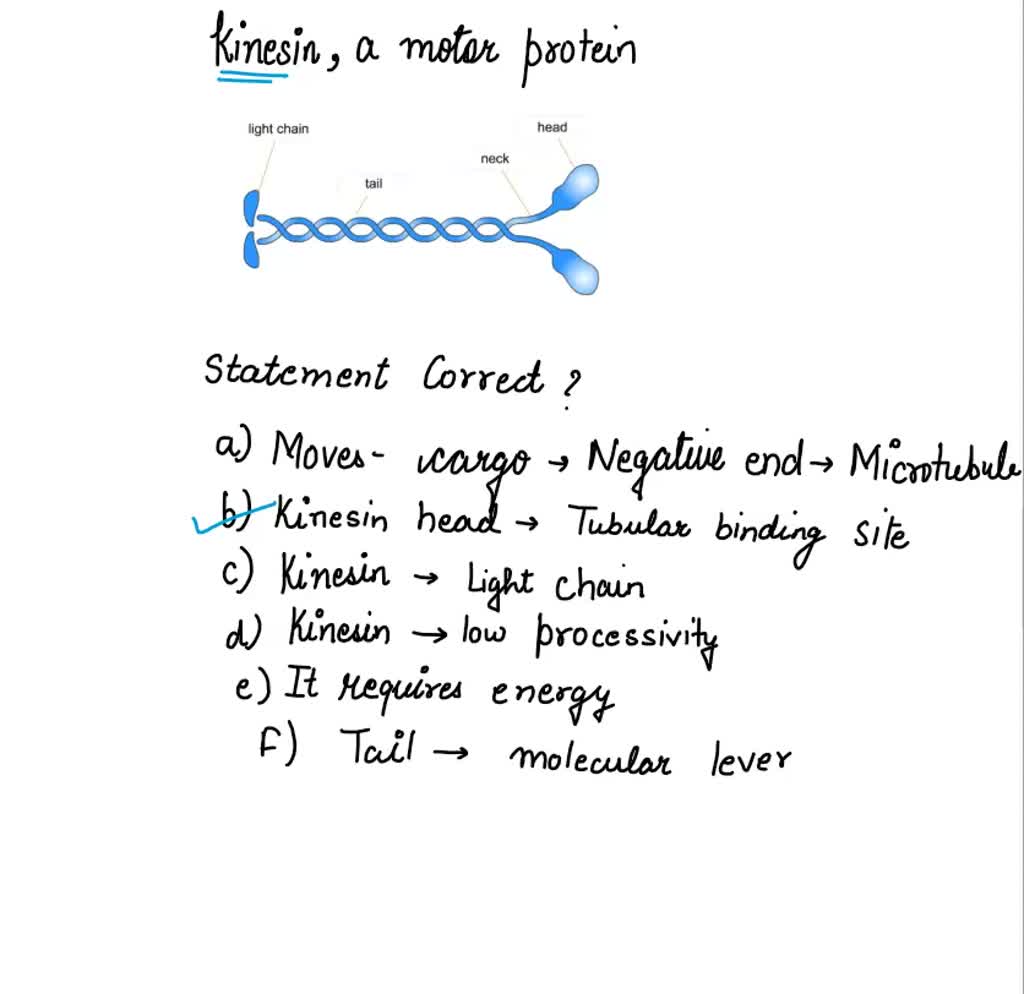 Kinesin, a motor protein
light chain
head
neck
tail
Statement Correct ?
a) Moves- cargo → Negative end → Microtubule
b) Kinesin head → Tubular binding site
c) Kinesin → Light chain
d) Kinesin → low processivity
e) It requires energy
F) Tail → molecular lever